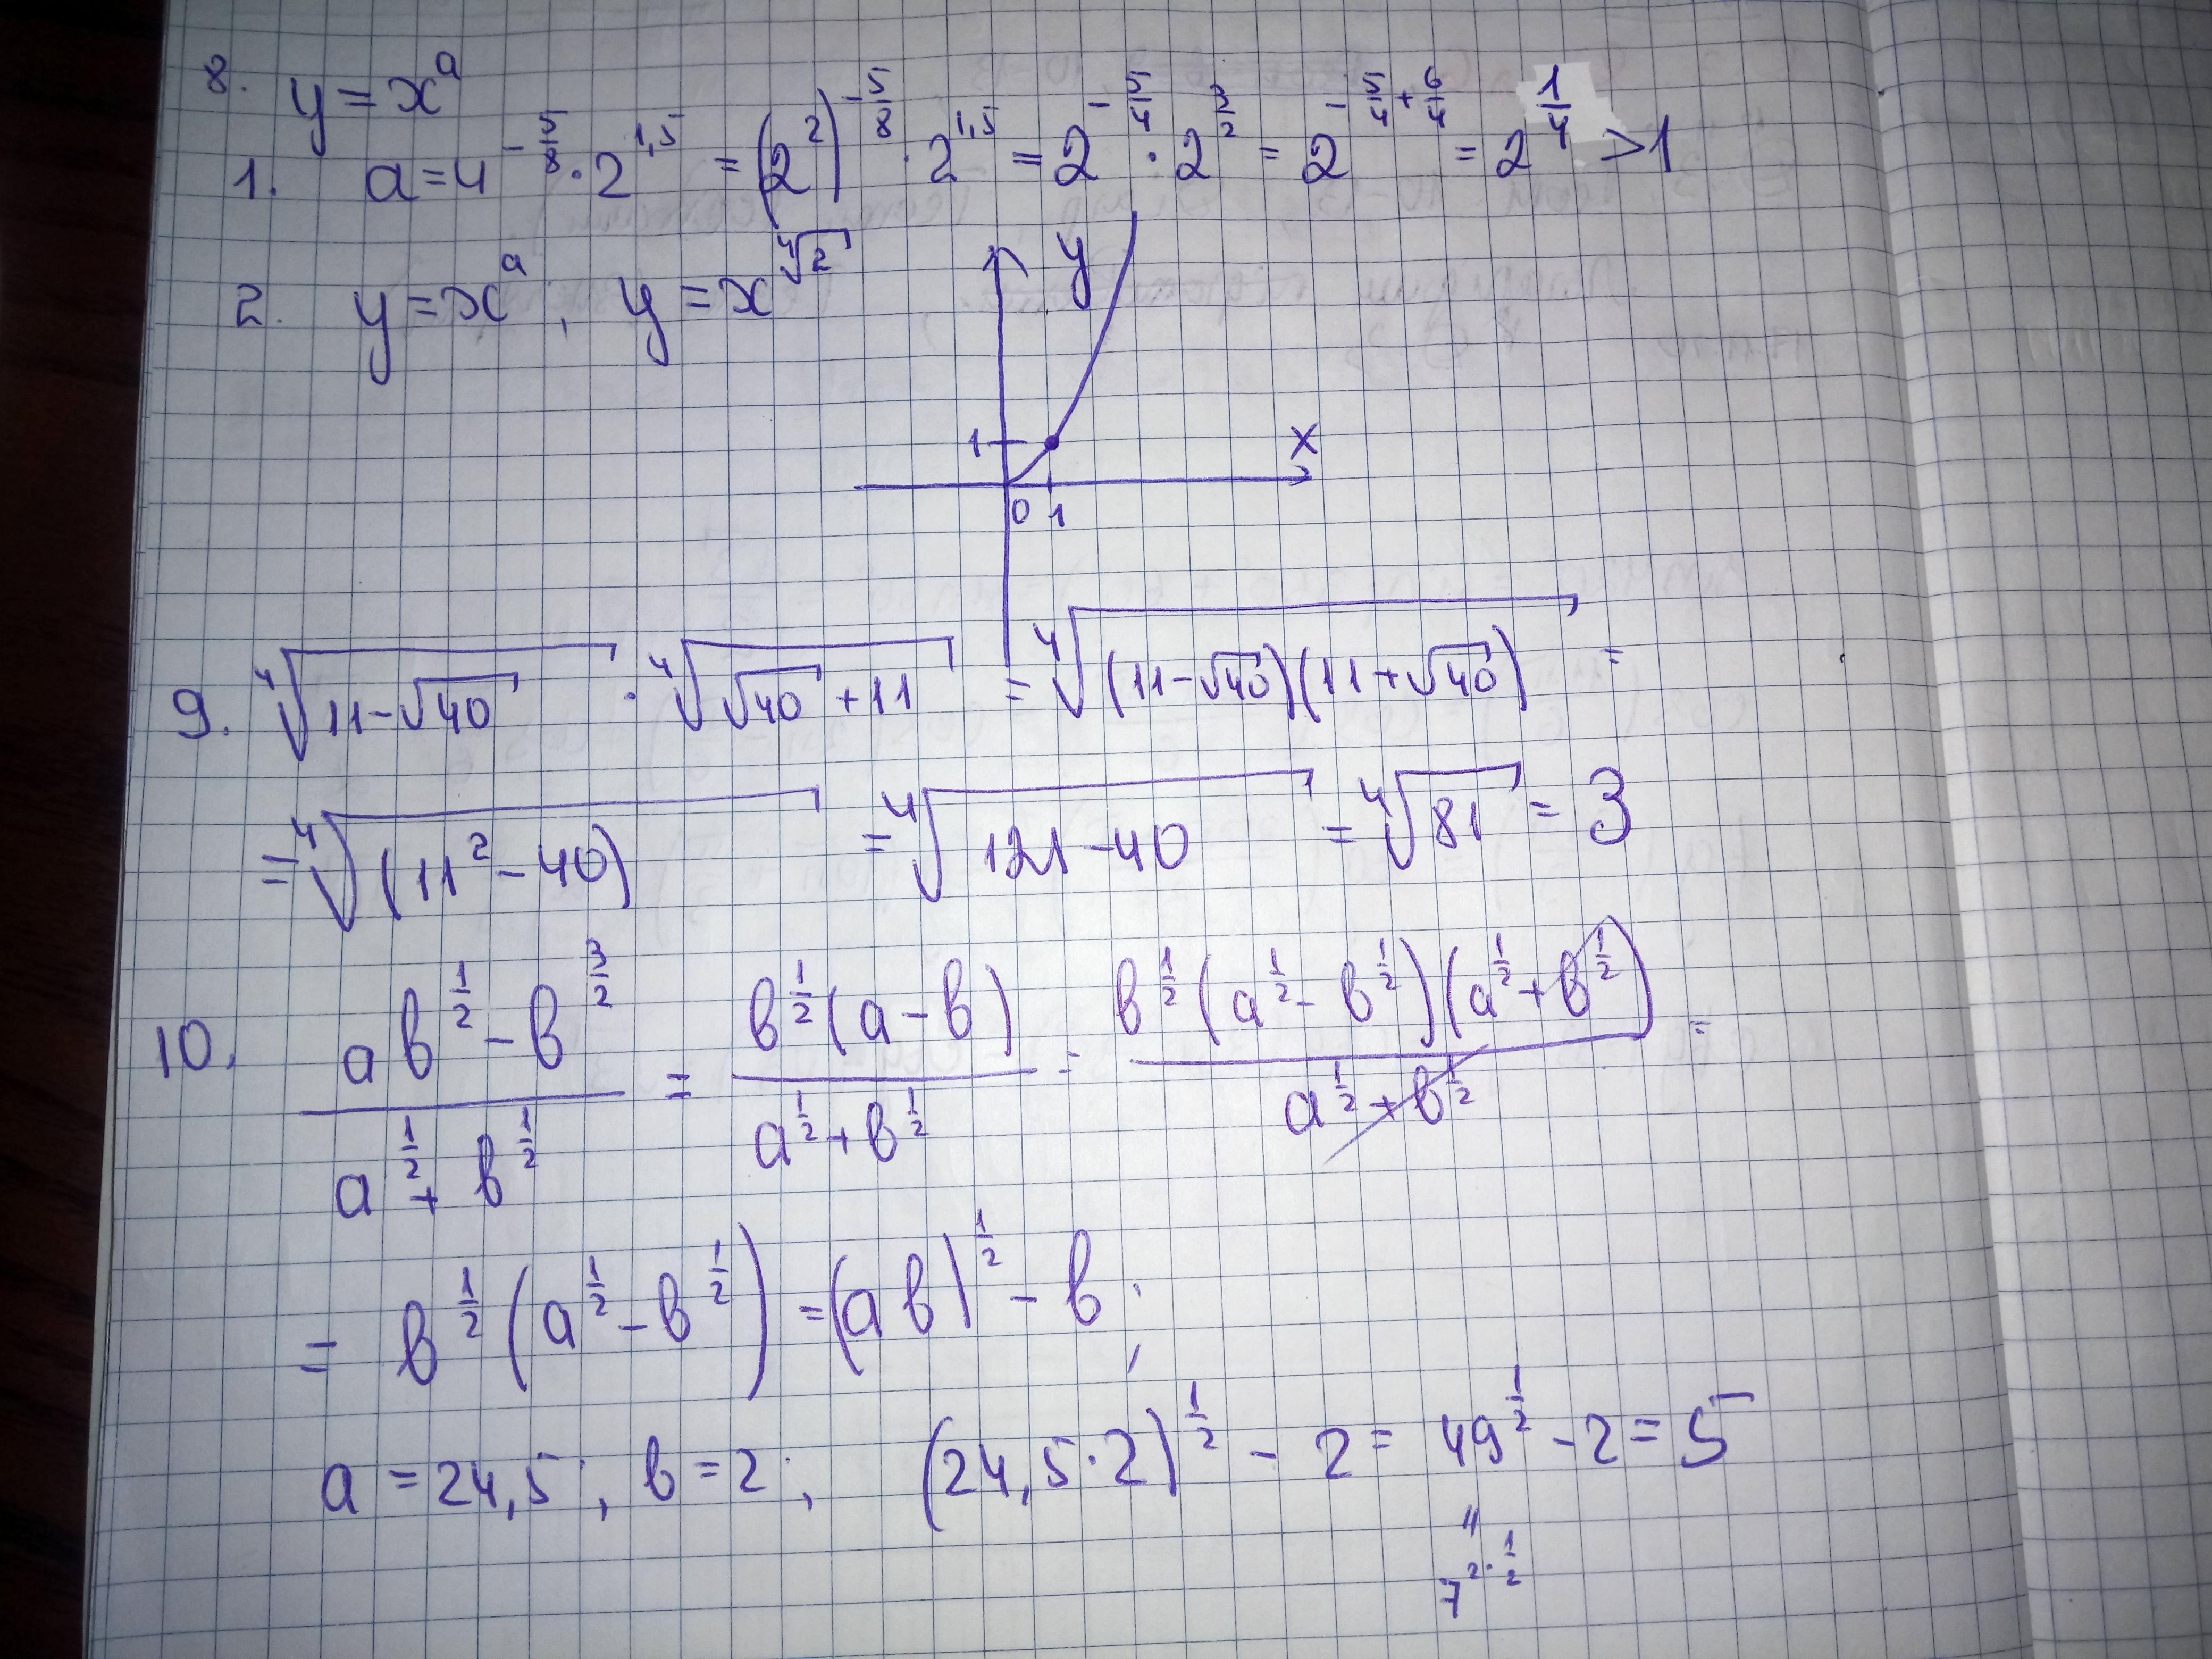 8. y = x^a
1. a = 4^(-5/8) · 2^(1,5) = (2^2)^(-5/8) · 2^(1,5) = 2^(-5/4) · 2^(3/2) = 2^(-5/4 + 6/4) = 2^(1/4) > 1
2. y = x^a ; y = x^(⁴√2)
y
1
x
0 1
9. ⁴√(11-√40) · ⁴√(√40 + 11) = ⁴√((11-√40)(11+√40)) =
= ⁴√((11^2 - 40)) = ⁴√(121-40) = ⁴√81 = 3
10. (a b^(1/2) - b^(3/2)) / (a^(1/2) + b^(1/2)) = (b^(1/2) (a - b)) / (a^(1/2) + b^(1/2)) = (b^(1/2) (a^(1/2) - b^(1/2)) (a^(1/2) + b^(1/2))) / (a^(1/2) + b^(1/2)) =
= b^(1/2) (a^(1/2) - b^(1/2)) = (ab)^(1/2) - b ;
a = 24,5 ; b = 2 ; (24,5 · 2)^(1/2) - 2 = 49^(1/2) - 2 = 5
"
7^(2 · 1/2)